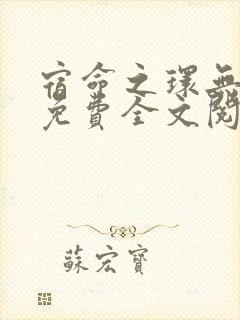 宿命之環無
免費全文閱
蘇宏寶